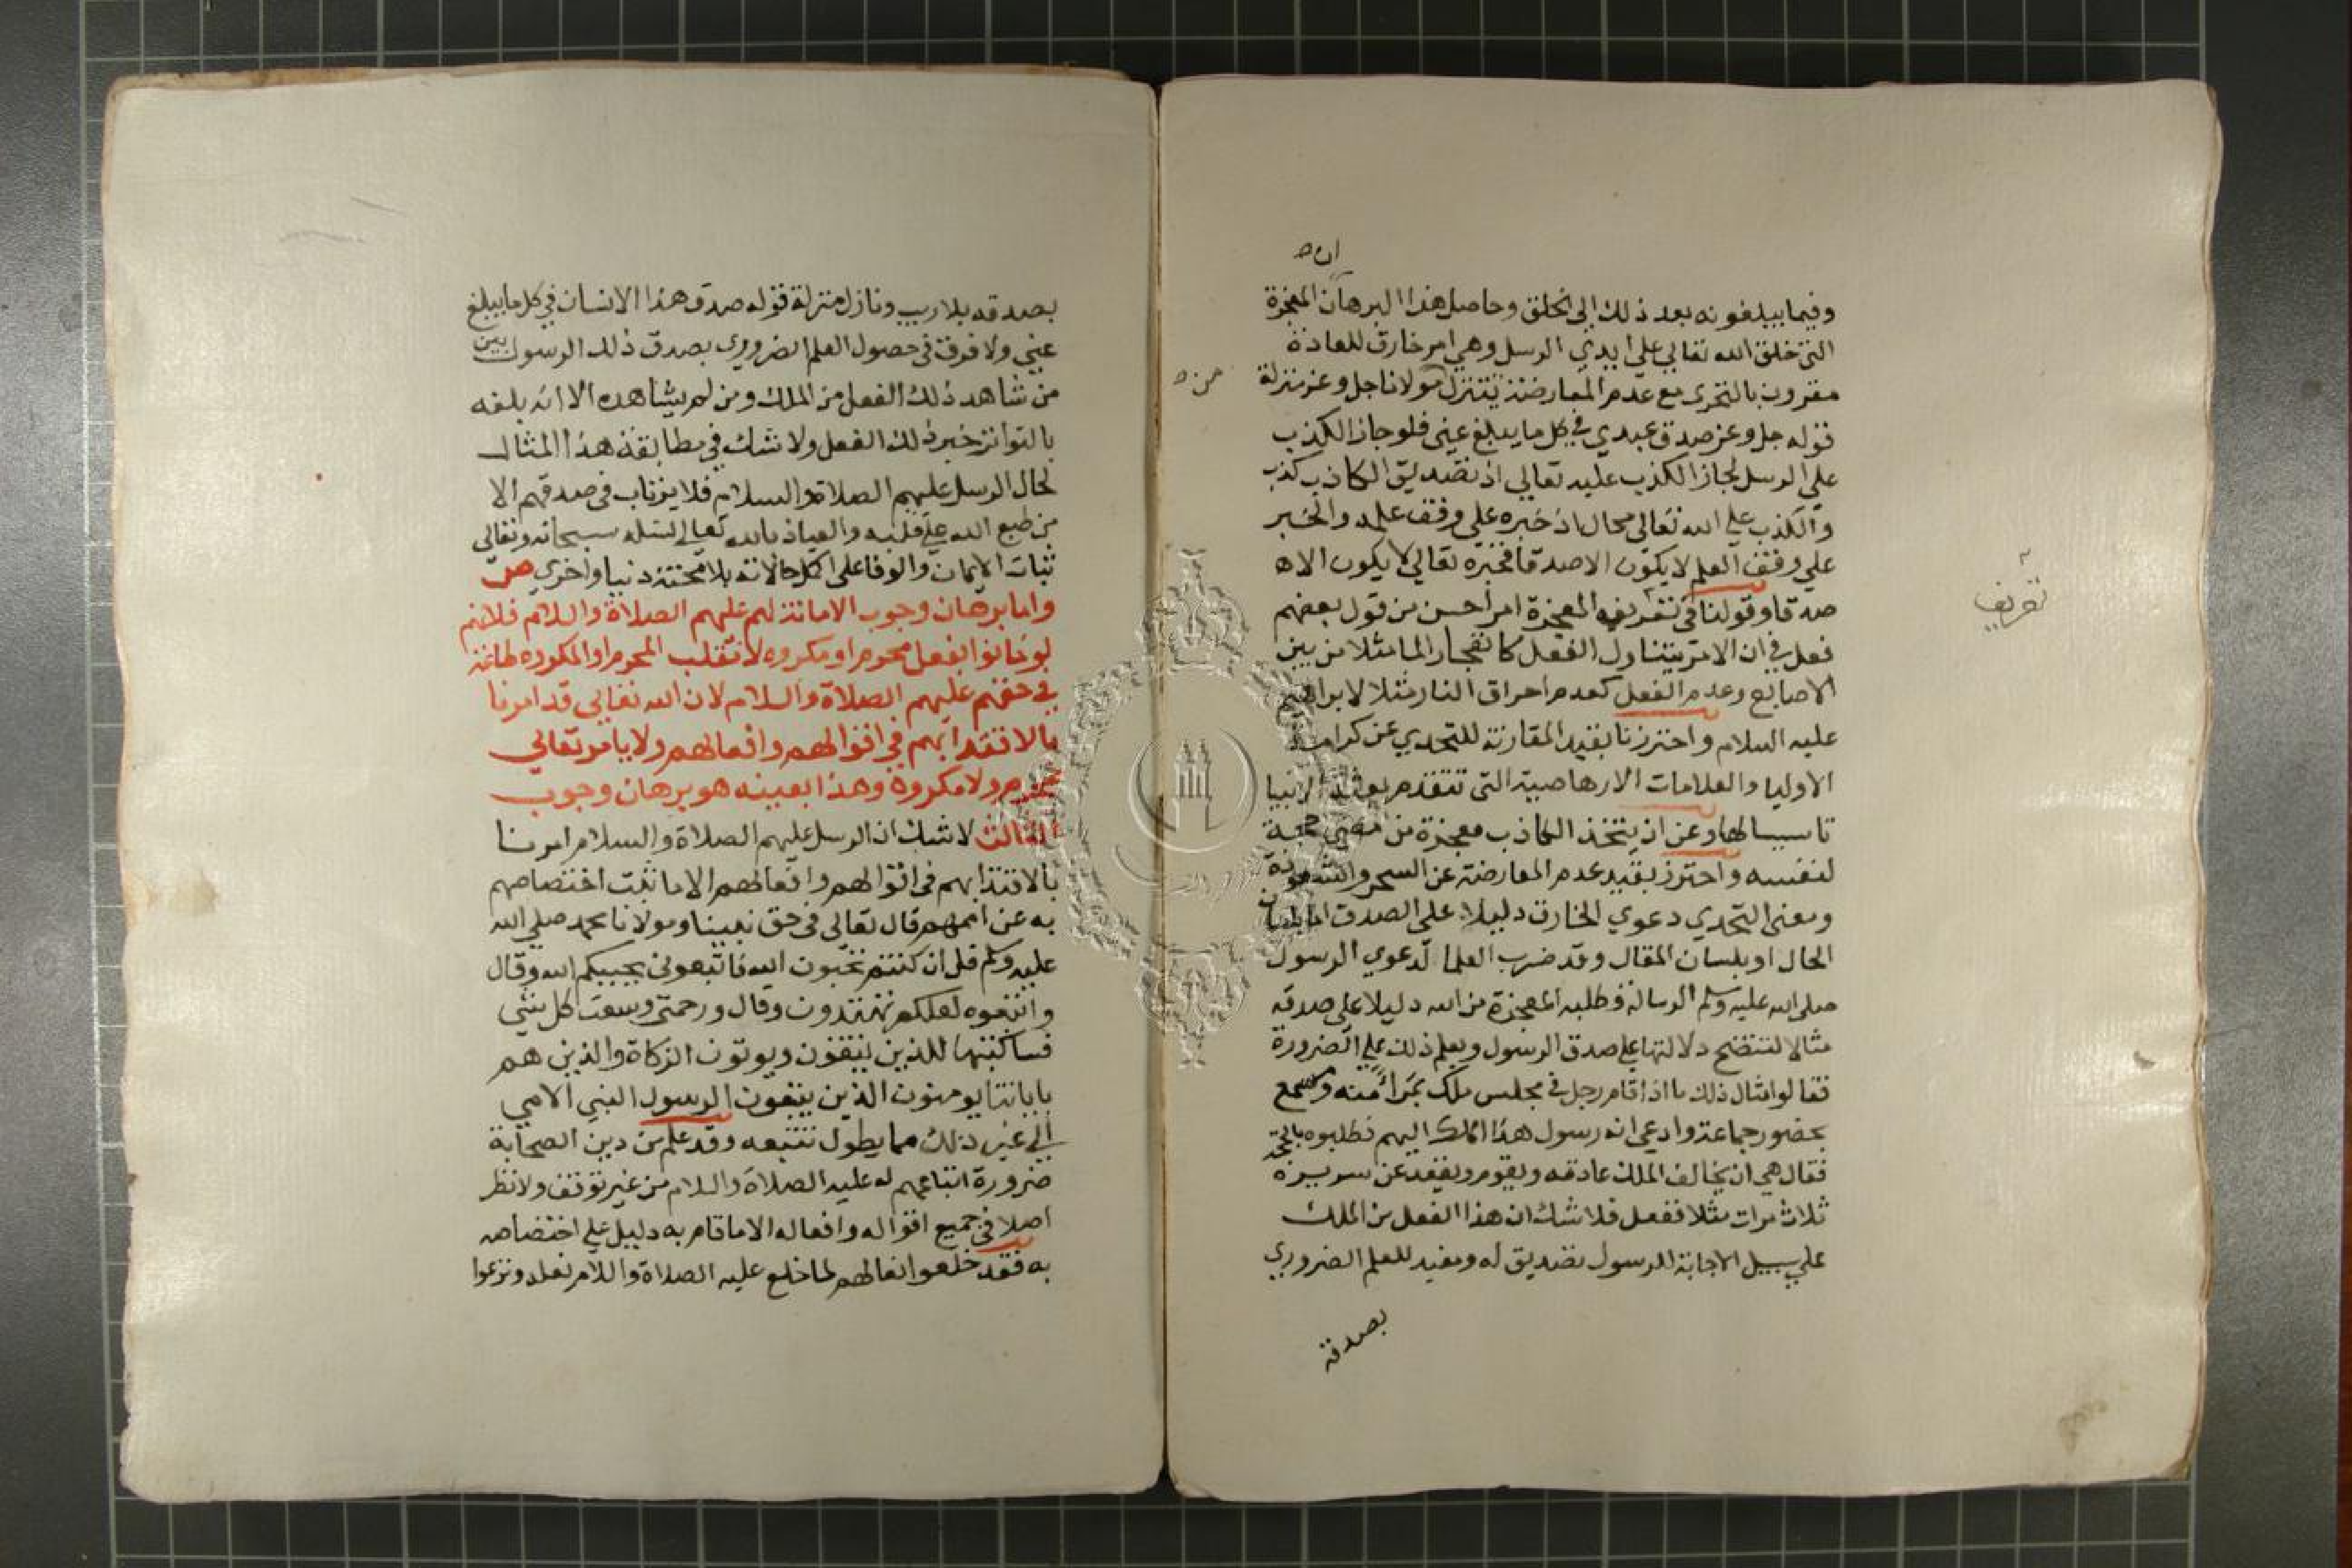 ان ص
وفيما يبلغونه بعد ذلك الى الخلق وحاصل هذا البرهان المعجزة
التى خلق الله تعالى على ايدي الرسل وهي امر خارق للعادة
مقرون بالتحرى مع عدم المعارضة يتنزل مولانا جل وعز منزلة
من ص
قوله جل وعز صدق عبدي في كل ما يبلغ عني فلو جاز الكذب
علي الرسل لجاز الكذب عليه تعالى اذ تصديق الكاذب كذب
والكذب علي الله تعالى محال اذ خبره علي وفق علمه والخبر
علي وفق العلم لا يكون الا صدقا فخبره تعالي لا يكون الا ه
صدقا وقولنا في تعريف المعجزة امر احسن من قول بعضهم
تعريف
فعل في ان الامر يتناول الفعل كانفجار الما مثلا من بين
الاصابع وعدم الفعل كعدم احراق النار مثلا لابراهيم
عليه السلام واحترزنا بقيد المقارنة للتحدي عن كرامات
الاوليا والعلامات الارهاصية التى تتقدم بعثة الانبيا
تاسيسا لها وعن ان يتخذ الكاذب معجزة من مضى حجة
لنفسه واحترز بقيد عدم المعارضة عن السحر والشعوذة
ومعنى التحدي دعوي الخارق دليلا على الصدق اما بلسان
الحال او بلسان المقال وقد ضرب العلما لدعوي الرسول
صلى الله عليه وسلم الرسالة وطلبه المعجزة من الله دليلا على صدقه
مثالا لتتضح دلالتها على صدق الرسول ويعلم ذلك علي الضرورة
فقالوا مثال ذلك ما اذا قام رجل في مجلس ملك بمرا منه ومسمع
بحضور جماعة وادعي انه رسول هذا الملك اليهم فطلبوه بالحجة
فقال هي ان يخالف الملك عادته ويقوم ويقعد عن سريره
ثلاث مرات مثلا ففعل فلا شك ان هذا الفعل من الملك
علي سبيل الاجابة للرسول تصديق له ومفيد للعلم الضروري
بصدقه
بصدقه بلا ريب ونازل منزلة قوله صدق هذا الانسان في كل ما يبلغ
عني ولا فرق في حصول العلم الضروري بصدق ذلك الرسول بين
من شاهد ذلك الفعل من الملك ومن لم يشاهده الا انه بلغه
بالتواتر خبر ذلك الفعل ولا شك في مطابقة هذا المثال
لحال الرسل عليهم الصلاة والسلام فلا يرتاب في صدقهم الا
من طبع الله علي قلبه والعياذ بالله تعالى نسئله سبحانه وتعالى
ثبات الايمان والوفا على اكمل حالاته بلا محنة دنيا واخري ص
واما برهان وجوب الامانة لهم عليهم الصلاة والسلام فلانهم
لو خانوا بفعل محرم او مكروه لانقلب المحرم او المكروه طاعة
في حقهم عليهم الصلاة والسلام لان الله تعالى قد امرنا
بالاقتدا بهم في اقوالهم وافعالهم ولا يامر تعالي
بمحرم ولا مكروه وهذا بعينه هو برهان وجوب
الثالث لا شك ان الرسل عليهم الصلاة والسلام امرنا
بالاقتدا بهم في اقوالهم وافعالهم الا ما ثبت اختصاصهم
به عن اممهم قال تعالى في حق نبينا ومولانا محمد صلى الله
عليه وسلم قل ان كنتم تحبون الله فاتبعوني يحببكم الله وقال
واتبعوه لعلكم تهتدون وقال ورحمتي وسعت كل شي
فساكتبها للذين يتقون ويوتون الزكاة والذين هم
باياتنا يومنون الذين يتبعون الرسول النبي الامي
الي غير ذلك مما يطول تتبعه وقد علم من دين الصحابة
ضرورة اتباعهم له عليه الصلاة والسلام من غير توقف ولا نظر
اصلا في جميع اقواله وافعاله الا ما قام به دليل علي اختصاصه
به فقد خلعوا نعالهم لما خلع عليه الصلاة والسلام نعله ونزعوا